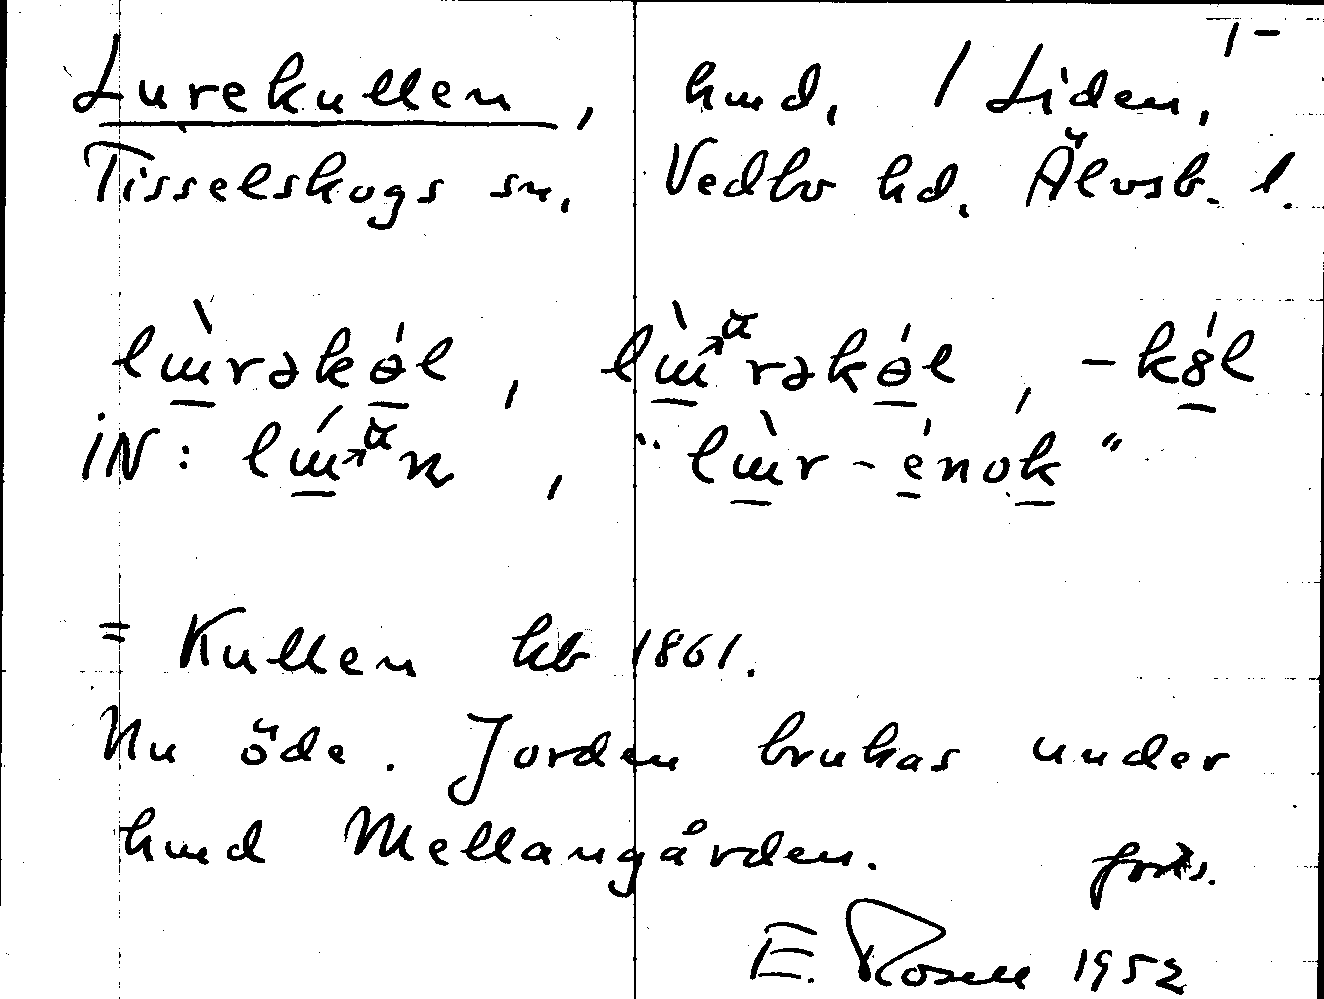 1-
Lurekullen, hmd. 1 Liden,
Tisselskogs sn, Vedbo hd. Älvsb. l.
lɯ̀rəkɵ́l, -kȣ́l
iN: "lɯ̀r-énok"
= Kullen kb 1861.
Nu öde. Jorden brukas under
hmd Mellangården. forts.
E. Rosell 1952